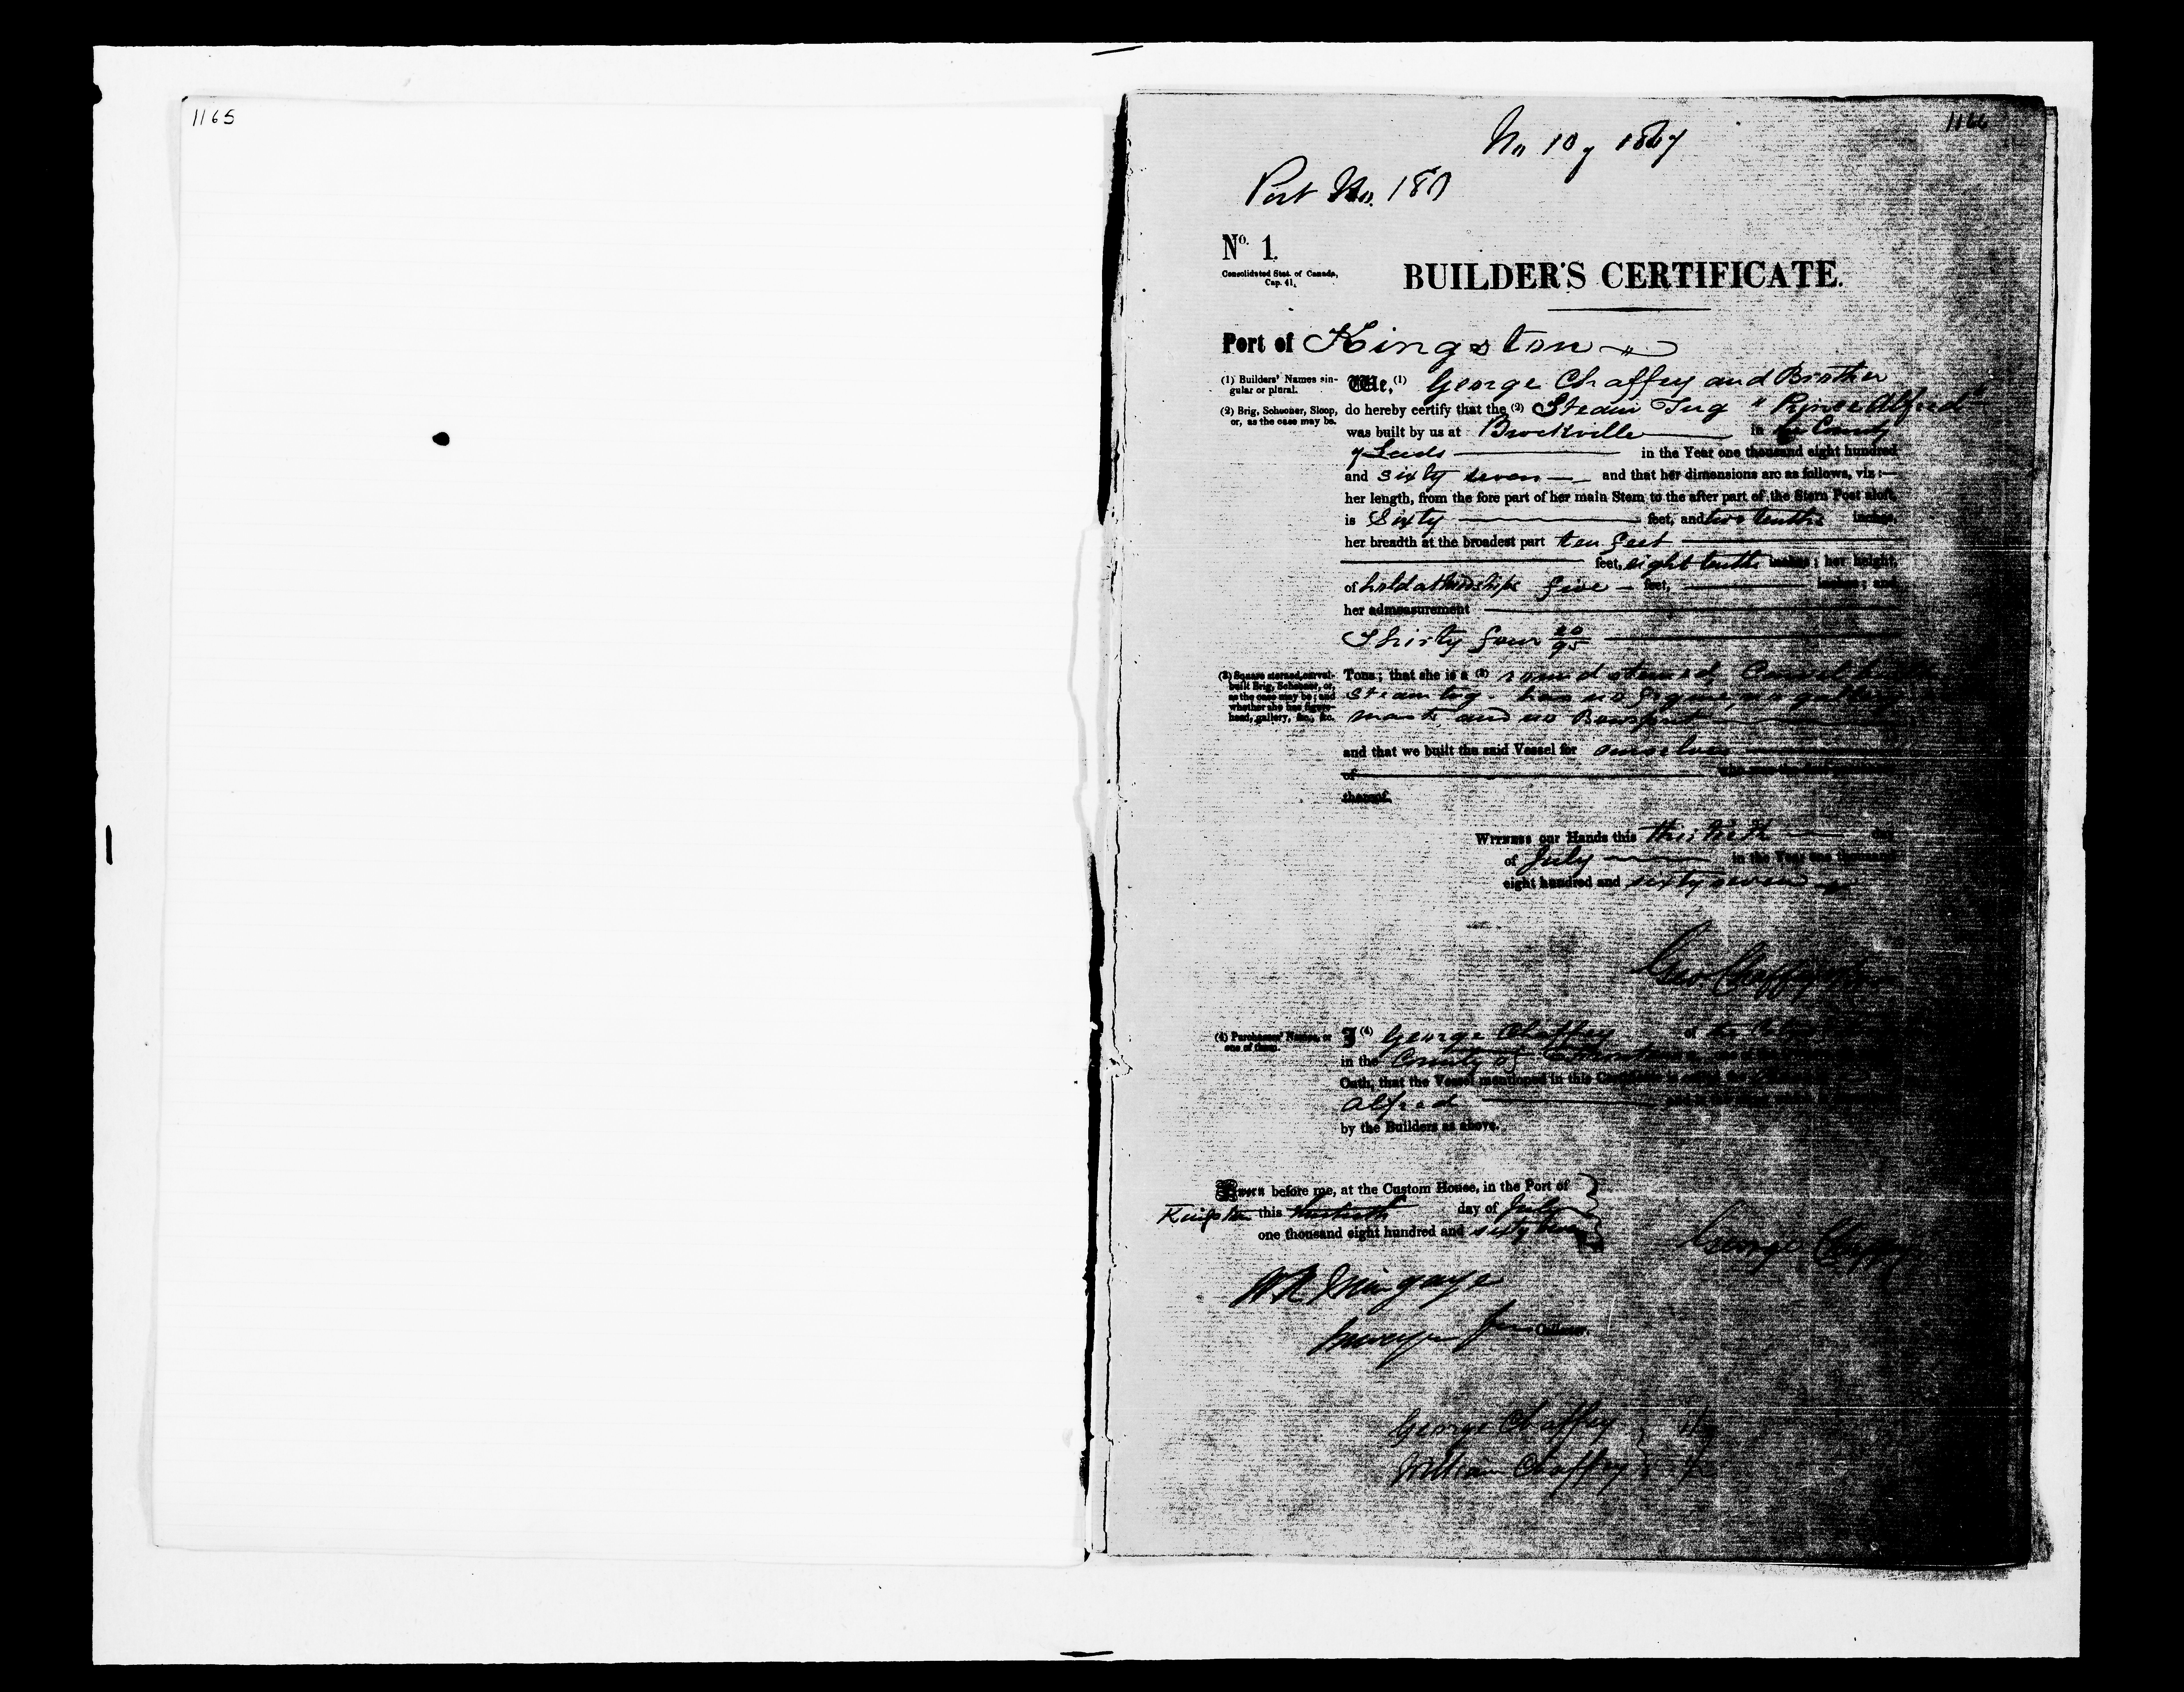 1165
1166
No 10 of 1867
Port No. 187
No. 1.
Consolidated Stat. of Canada,
Cap. 41.
BUILDER'S CERTIFICATE.
Port of Kingston
(1) Builders' Names singular or plural.
We, (1) George Chaffey and Brother
(2) Brig, Schooner, Sloop, or, as the case may be.
do hereby certify that the (2) Steam Tug "Prince Alfred"
was built by us at Brockville in the County
of Leeds in the Year one thousand eight hundred
and sixty seven and that her dimensions are as follows, viz:—
her length, from the fore part of her main Stem to the after part of the Stern Post aloft,
is Sixty feet, and two tenths inches,
her breadth at the broadest part ten feet
feet, eight tenths inches; her height,
of hold at midships five feet, inches; and
her admeasurement
Thirty four 20/95
(3) Square sterned, carvel-built Brig, Schooner, or, as the case may be; and whether she has figure-head, gallery, &c., &c.
Tons; that she is a (3) round sterned, Carvel built
Steam tug has no figure, no gallery
masts and no Bowsprit
and that we built the said Vessel for ourselves
of
thereof.
Witness our Hands this thirtieth day
of July in the Year one thousand
eight hundred and sixty seven
Geo. Chaffey & Bro
(4) Purchasers' Names, or one of them.
I (4) George Chaffey of the
in the County of
Oath, that the Vessel mentioned in this Certificate is
Alfred
by the Builders as above.
Sworn before me, at the Custom House, in the Port of
Kingston this thirtieth day of July
one thousand eight hundred and sixty seven
George Chaffey
W R Mingaye
Surveyor
George Chaffey
William Chaffey